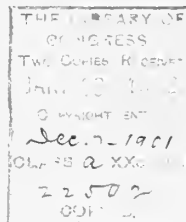 THE LIBRARY OF
CONGRESS
TWO COPIES RECEIVED
COPYRIGHT ENTRY
Dec. 7-1901
CLASS a XXc
22502
COPY